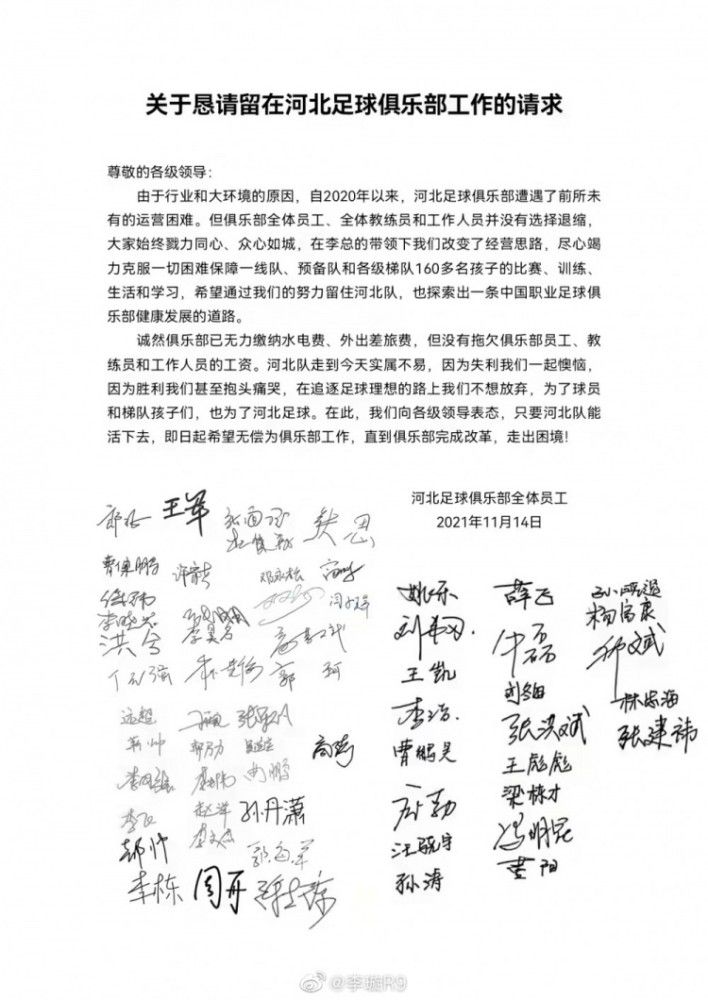 关于恳请留在河北足球俱乐部工作的请求
尊敬的各级领导：
由于行业和大环境的原因，自2020年以来，河北足球俱乐部遭遇了前所未
有的运营困难。但俱乐部全体员工、全体教练员和工作人员并没有选择退缩，
大家始终戮力同心、众心如城，在李总的带领下我们改变了经营思路，尽心竭
力克服一切困难保障一线队、预备队和各级梯队160多名孩子的比赛、训练、
生活和学习，希望通过我们的努力留住河北队，也探索出一条中国职业足球俱
乐部健康发展的道路。
诚然俱乐部已无力缴纳水电费、外出差旅费，但没有拖欠俱乐部员工、教
练员和工作人员的工资。河北队走到今天实属不易，因为失利我们一起懊恼，
因为胜利我们甚至抱头痛哭，在追逐足球理想的路上我们不想放弃，为了球员
和梯队孩子们，也为了河北足球。在此，我们向各级领导表态，只要河北队能
活下去，即日起希望无偿为俱乐部工作，直到俱乐部完成改革，走出困境！
河北足球俱乐部全体员工
2021年11月14日
王军
洪兮
郭珂
姚乐
薛飞
杨富康
王凯
李浩
曹鹏昊
张洪斌
林志海
张建祎
王彪彪
梁栋才
汪晓宇
冯明昆
孙涛
黄阳
高奇
赵洋
孙丹潇
郝帅
李栋
周开
@李璇R9